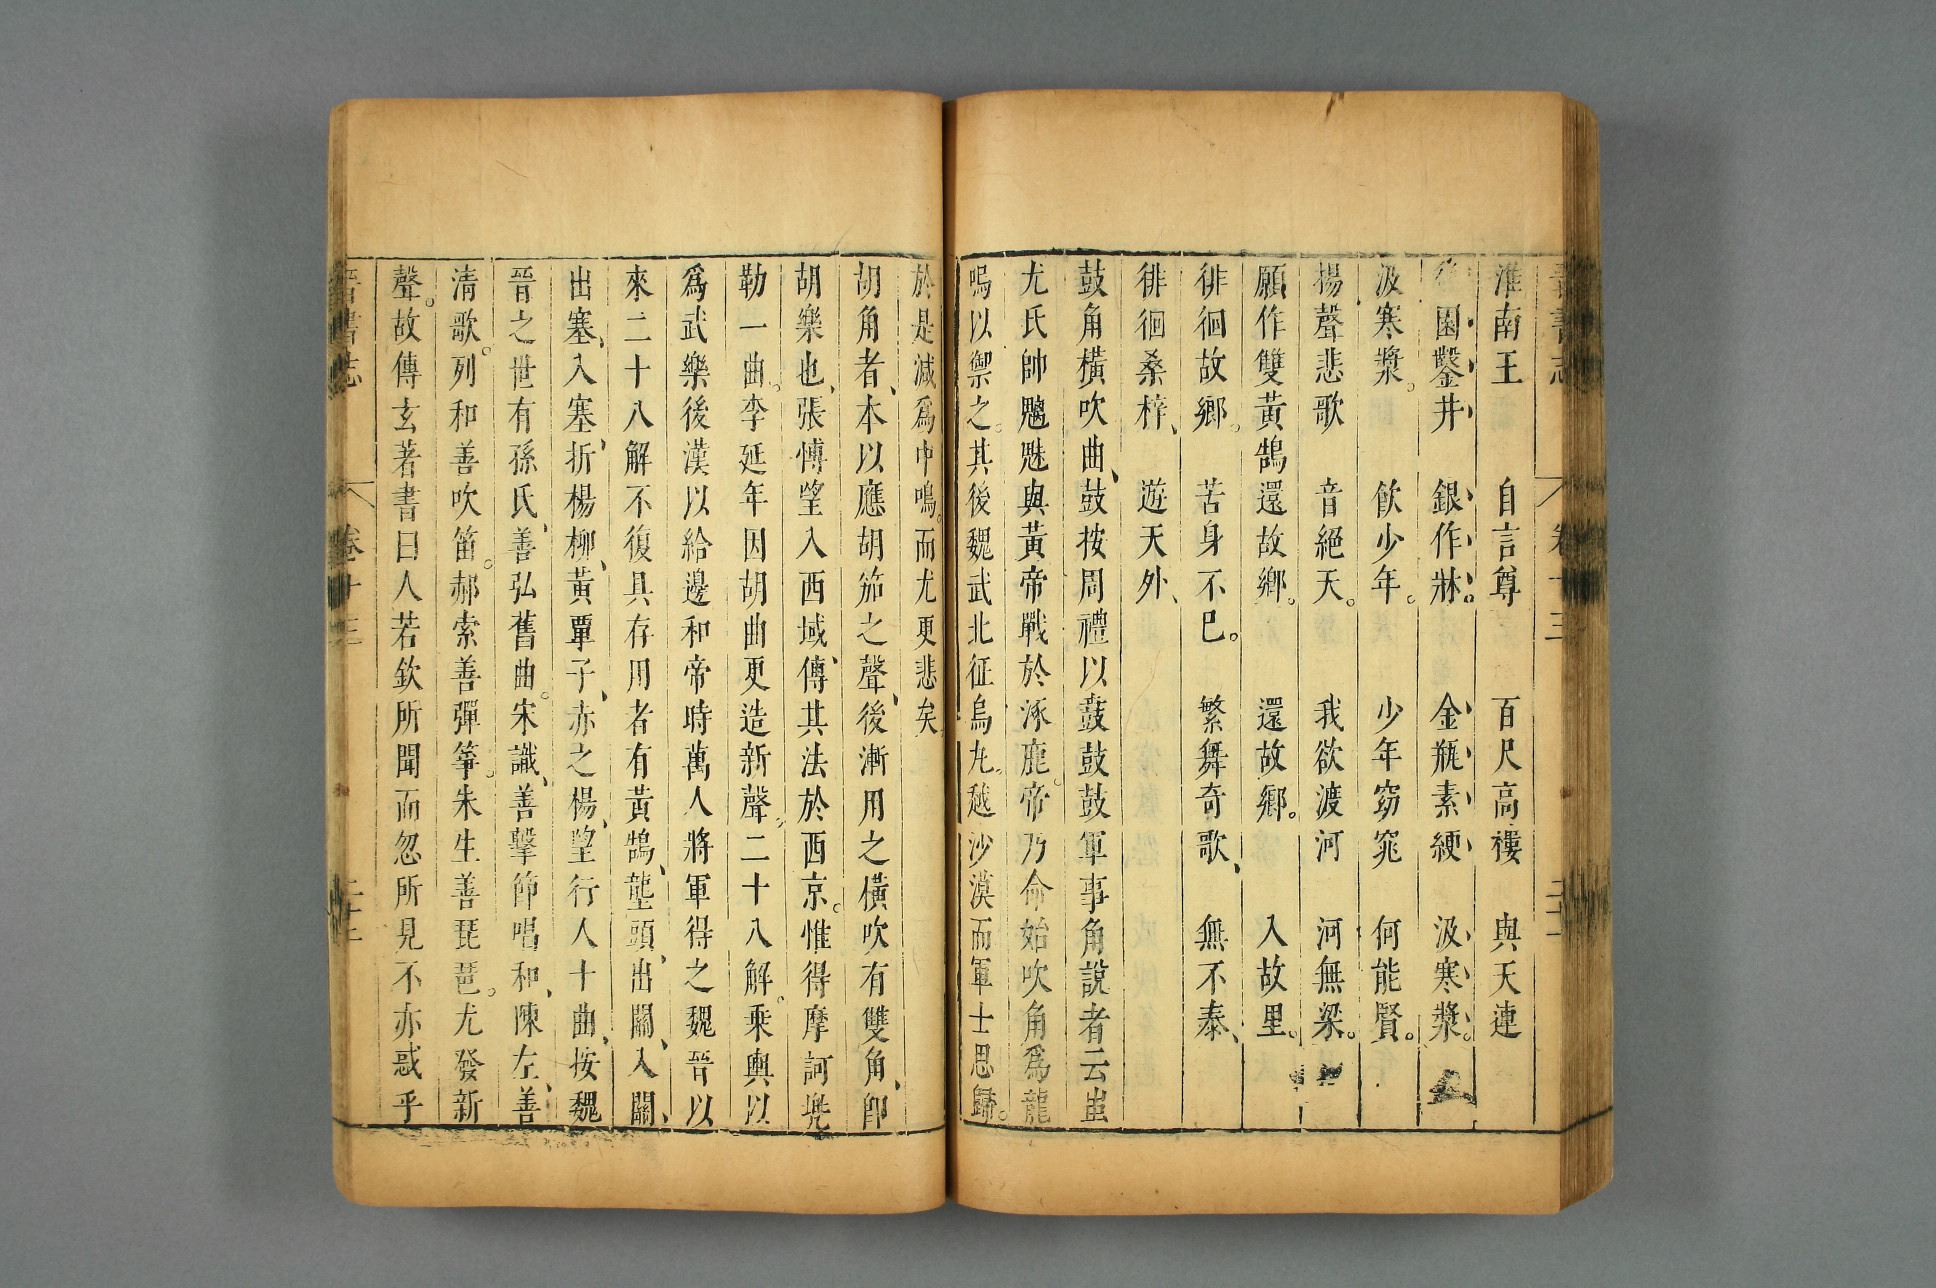 淮南王 自言尊 百尺高樓 與天連
後園鑿井 銀作牀。 金瓶素綆 汲寒漿。
汲寒漿。 飲少年。 少年窈窕 何能賢。
揚聲悲歌 音絕天。 我欲渡河 河無梁。
願作雙黃鵠還故鄉。 還故鄉。 入故里。
徘徊故鄉。 苦身不已。 繁舞奇歌、 無不泰、
徘徊桑梓、 遊天外、
鼓角橫吹曲、鼓按周禮以鼖鼓鼓軍事角說者云蚩
尤氏帥魑魅與黃帝戰於涿鹿。帝乃命始吹角爲龍
鳴以禦之。其後魏武北征烏丸。越沙漠而軍士思歸。
於是減爲中鳴。而尤更悲矣
胡角者、本以應胡笳之聲、後漸用之橫吹有雙角、卽
胡樂也、張博望入西域、傳其法於西京。惟得摩訶兜
勒一曲。李延年因胡曲更造新聲。二十八解。乘輿以
爲武樂後漢以給邊和帝時萬人將軍得之魏晉以
來二十八解不復具存用者有黃鵠、隴頭、出關、入關、
出塞、入塞、折楊柳、黃覃子、赤之楊、望行人十曲、按魏
晉之世有孫氏、善弘舊曲。宋識、善擊節唱和、陳左、善
清歌。列和善吹笛。郝索善彈箏。朱生善琵琶。尤發新
聲。故傅玄著書曰人若欽所聞而忽所見不亦惑乎
晉書志 卷十三